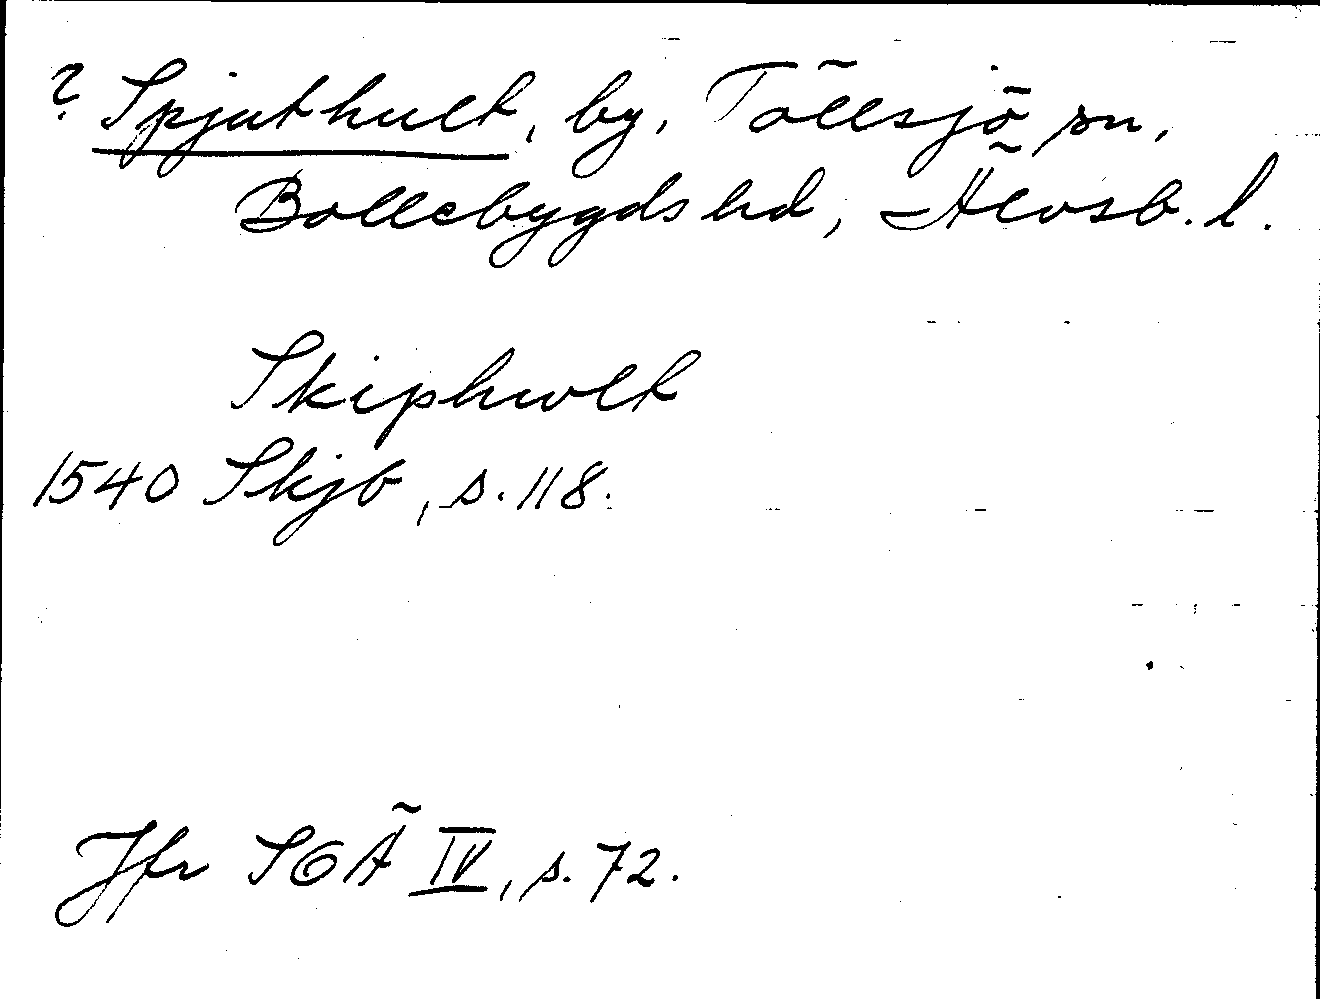 ? Spjuthult, by, Töllsjö sn,
Bollebygds hd, Älvsb. l.
Skiphwlt
1540 Skjb, s. 118.
Jfr SOÄ IV, s. 72.